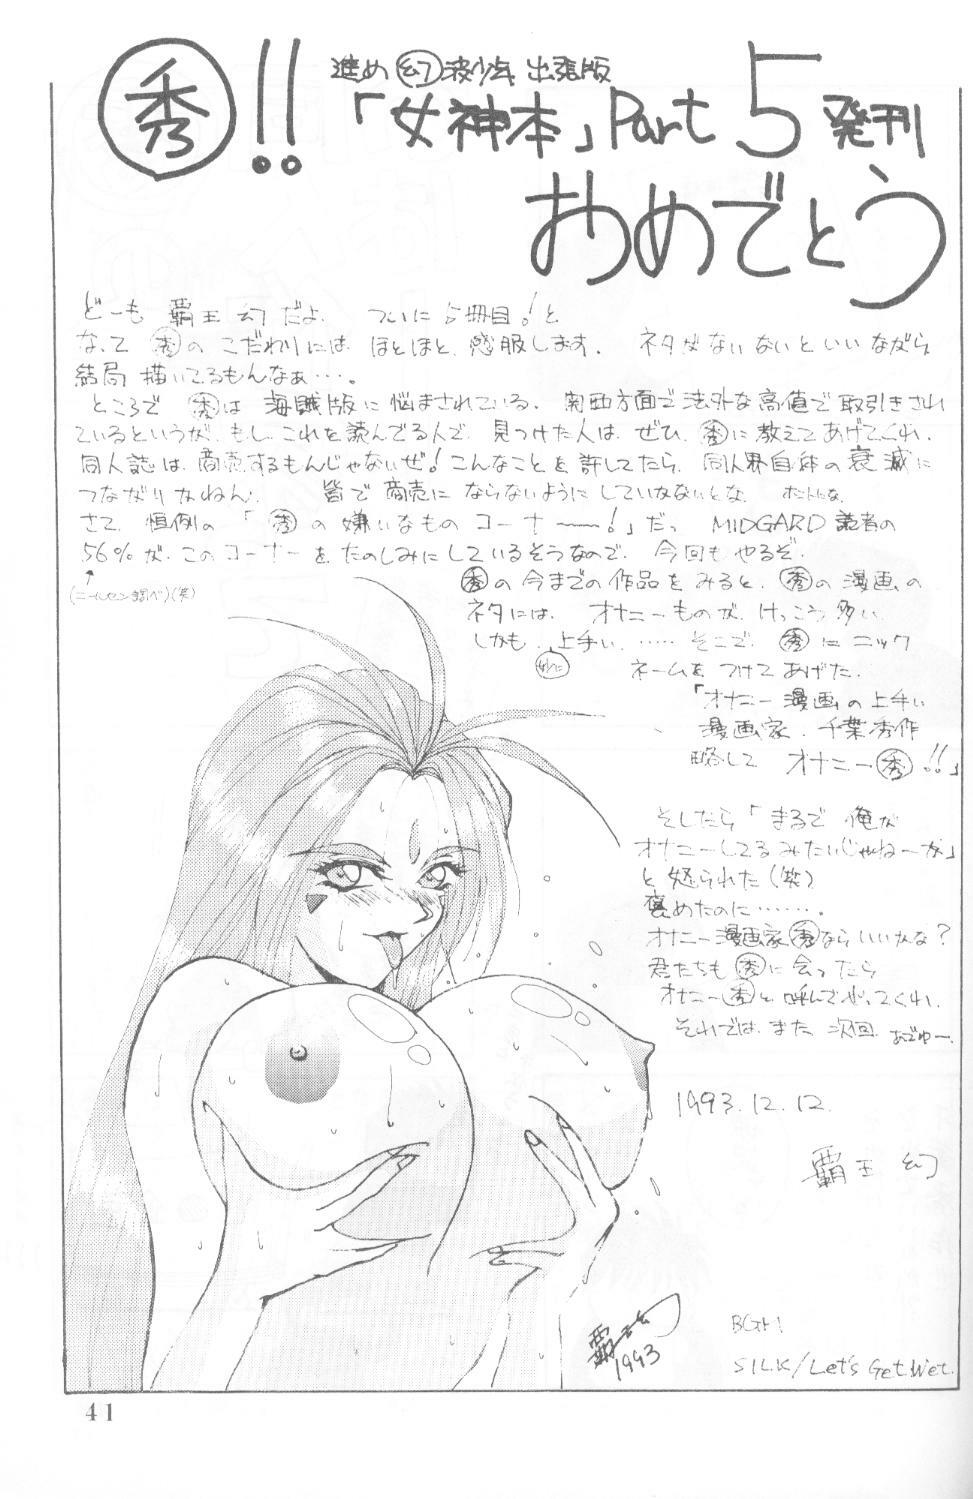 秀!! 進め幻波少年 出張版
「女神本」Part 5 発刊
おめでとう
どーも 覇王 幻 だよ. ついに5冊目!と
なって 秀の こだわりには ほとほと 感服します. ネタがないないといいながら
結局 描いてるもんなぁ….
ところで 秀は 海賊版に悩まされている. 関西方面で法外な高値で取引きされ
ているというが、もし、これを読んでる人で、見つけた人は、ぜひ、秀に教えてあげてくれ.
同人誌は、商売するもんじゃないぜ!こんなことを許してたら、同人界自体の衰滅に
つながりかねん. 皆で商売にならないようにしていかないとな. ホントにな.
さて、恒例の「秀の嫌いなものコーナー〜!」だっ MIDGARD 読者の
56%が、このコーナーをたのしみにしているそうなので、今回もやるぞ.
(ニールセン調べ)(笑)
秀の今までの作品をみると、秀の漫画の
ネタには、オナニーものが、けっこう多い.
しかも、上手い……そこで、秀にニック
妙に
ネームをつけてあげた.
「オナニー漫画の上手い
漫画家、千葉秀作
略して オナニー秀!!」
そしたら「まるで俺が
オナニーしてるみたいじゃねーか」
と怒られた(笑)
褒めたのに…….
オナニー漫画家秀ならいいかな?
君たちも秀に会ったら
オナニー秀と呼んでやってくれ.
それでは、また次回. あでゅー.
1993.12.12.
覇王 幻
覇王幻
1993
BGM
SILK/Let's Get Wet.
41